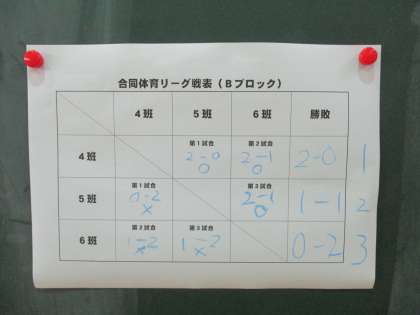 合同体育リーグ戦表（Bブロック）
4班 5班 6班 勝敗
第1試合 第2試合
4班 2-0 2-1 2-0 1
○ ○
第1試合 第3試合
5班 0-2 2-1 1-1 2
× ○
第2試合 第3試合
6班 1-2 1-2 0-2 3
× ×